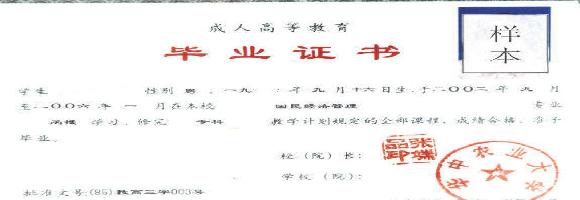 成人高等教育
样本
毕业证书
学生 性别 男，一九 年九月十六日生，于二〇〇三年九月
至二〇〇六年一月在本校 国民经济管理 专业
函授 学习，修完 专科 教学计划规定的全部课程，成绩合格，准予
毕业。
校（院）长：
学校（院）：
华中农业大学
批准文号(85)教高三字003号